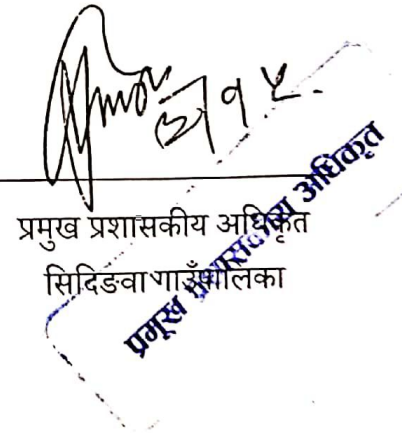 प्रमुख प्रशासकीय अधिकृत
सिदिङवा गाउँपालिका
प्रमुख प्रशासकीय अधिकृत